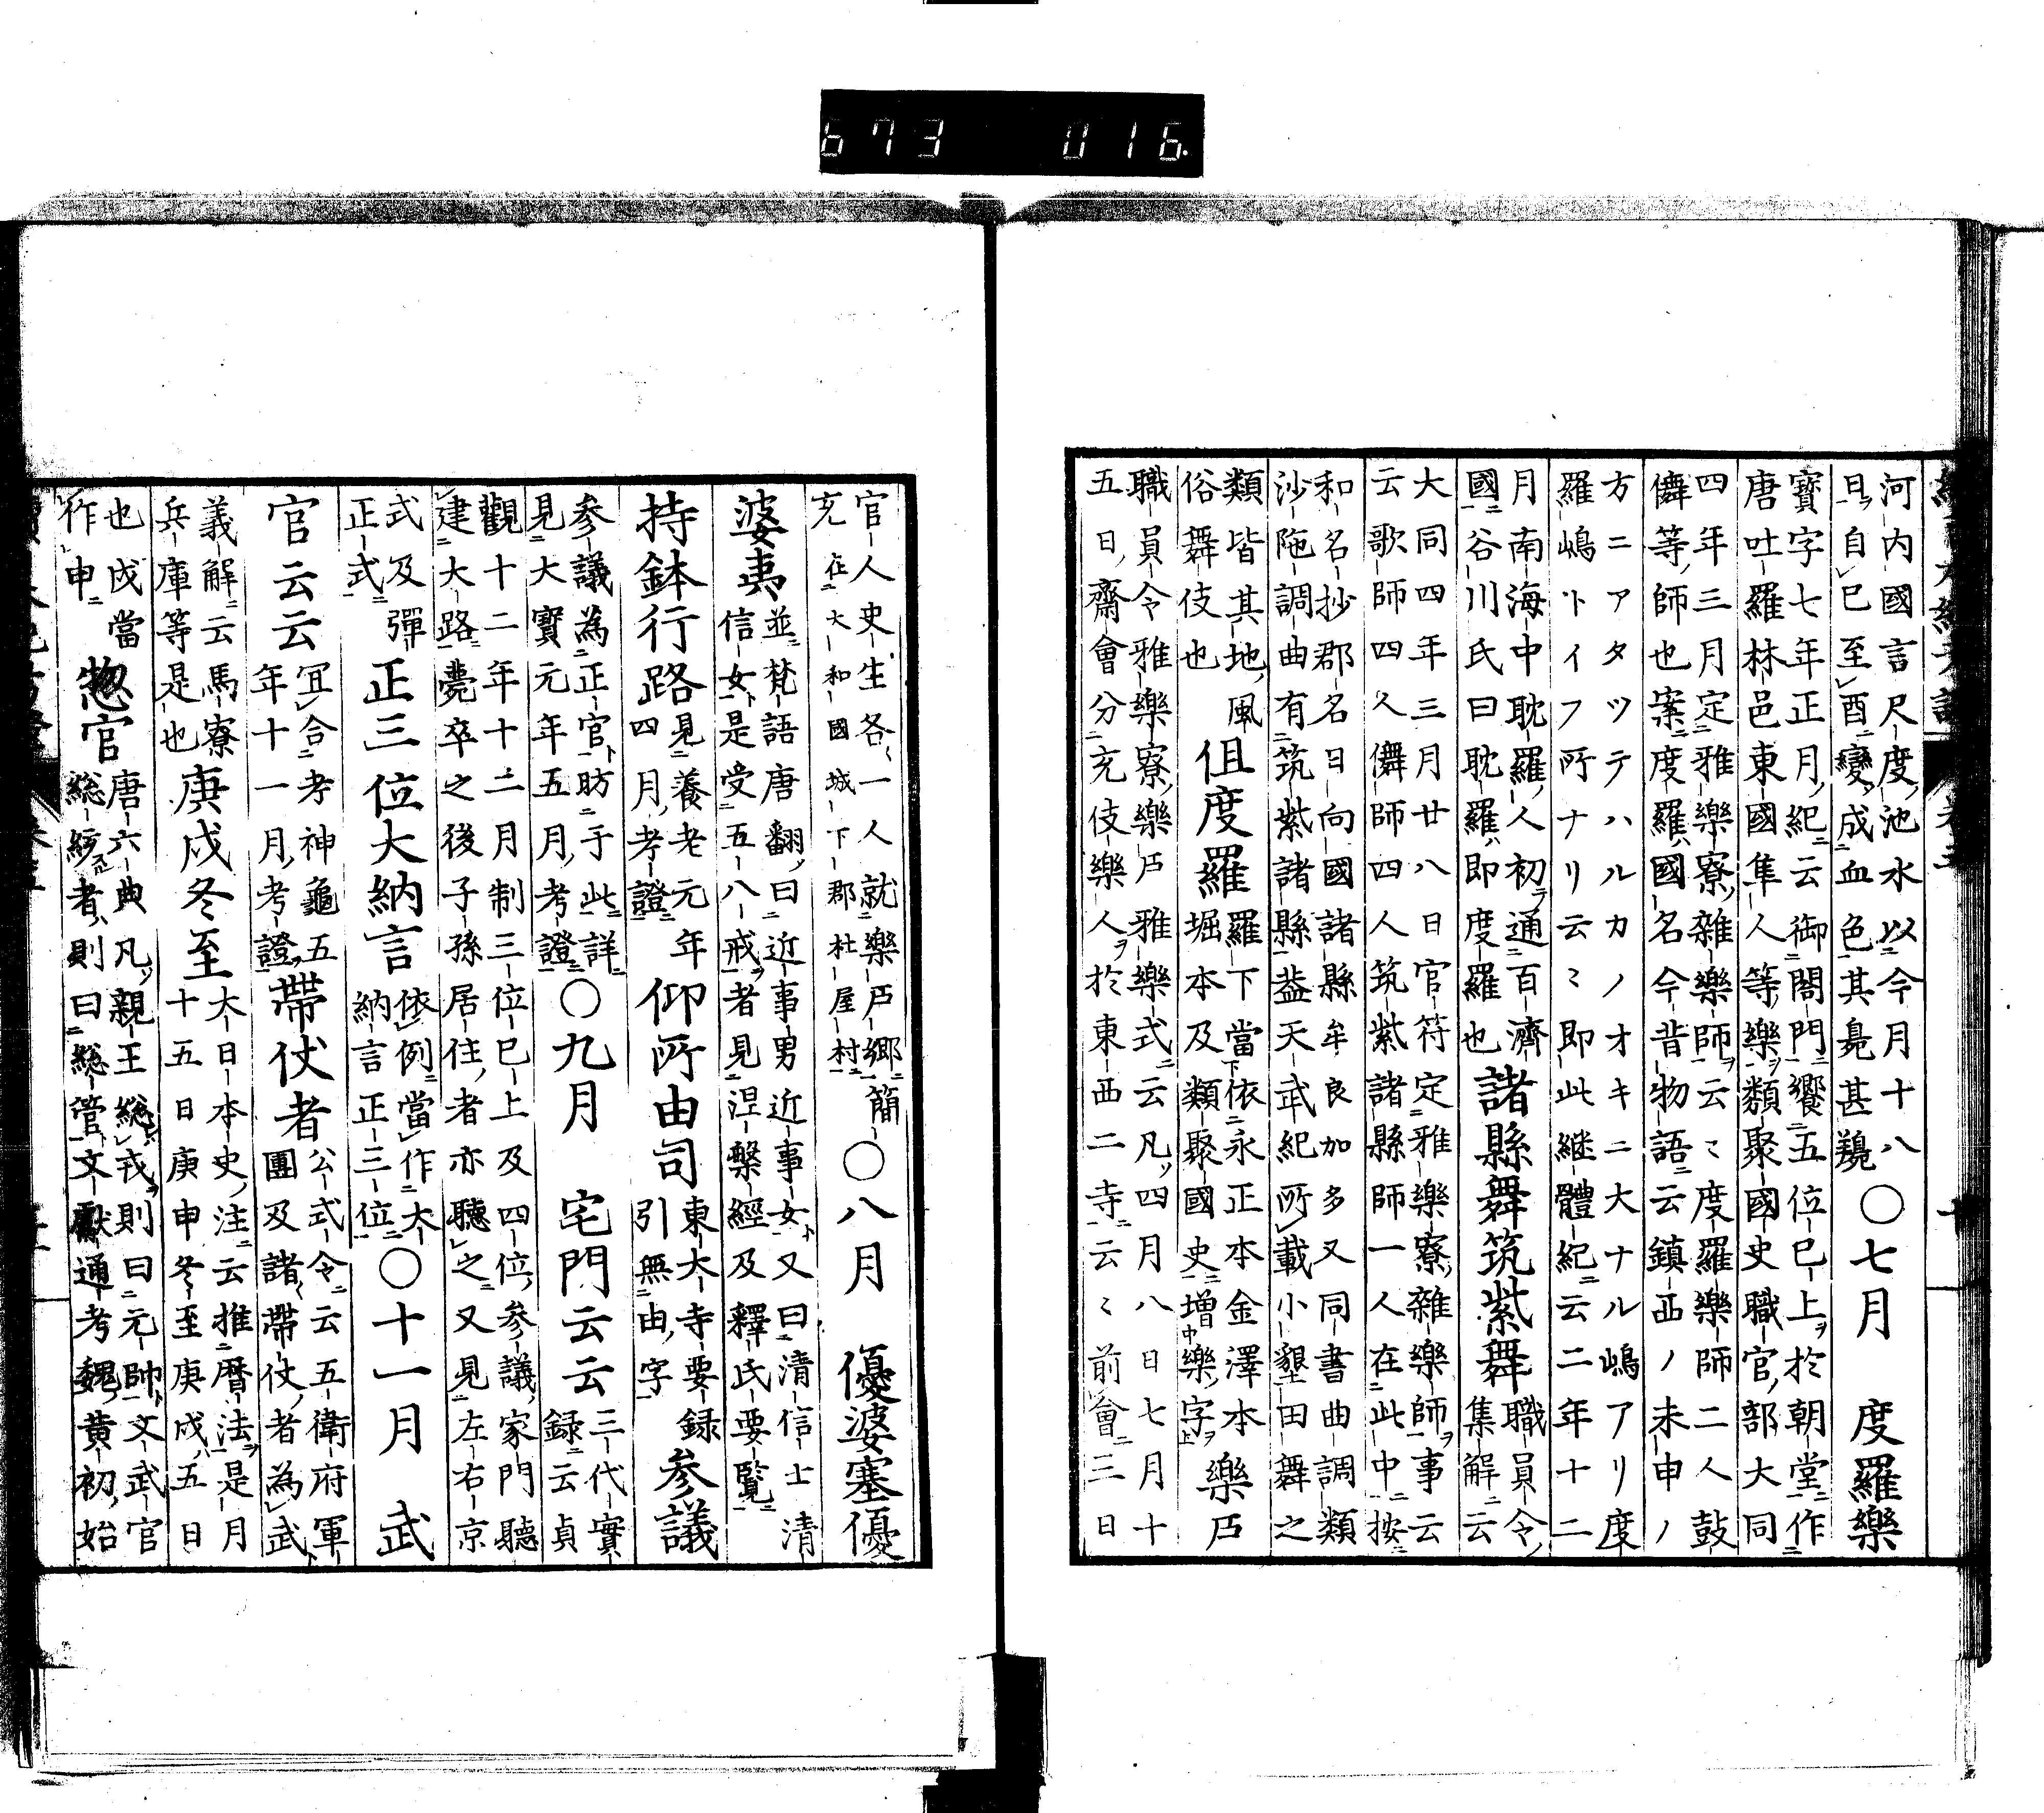 673 016.
河内國言尺度池水以今月十八
日自巳至酉變成血色其臭甚羶
〇七月 度羅樂
寶字七年正月紀云御閤門饗五位已上於朝堂作
唐吐羅林邑東國隼人等樂類聚國史職官部大同
四年三月定雅樂寮雜樂師云〻度羅樂師二人鼓
儛等師也案度羅國名今昔物語云鎭西ノ未申ノ
方ニアタツテハルカノオキニ大ナル嶋アリ度
羅嶋トイフ所ナリ云〻即此継體紀云二年十二
月南海中耽羅人初通百濟
國谷川氏曰耽羅即度羅也
諸縣舞筑紫舞
職員令
集解云
大同四年三月廿八日官符定雅樂寮雜樂師事云
云歌師四人儛師四人筑紫諸縣師一人在此中按
和名抄郡名日向國諸縣牟良加多又同書曲調類
沙陁調曲有筑紫諸縣葢天武紀所載小墾田舞之
類皆其地風
俗舞伎也
伹度羅
羅下當依永正本金澤本
堀本及類聚國史増樂字
樂戸
職員令雅樂寮樂戸雅樂式云凡四月八日七月十
五日齋會分充伎樂人於東西二寺云〻前會三日
官人史生各一人就樂戸郷簡
充在大和國城下郡杜屋村
〇八月 優婆塞優
婆夷
並梵語唐翻曰近事男近事女又曰清信士清
信女是受五八戒者見涅槃經及釋氏要覽
持鉢行路
見養老元年
四月考證
仰所由司
東大寺要録
引無由字
参議
参議為正官昉于此詳
見大寶元年五月考證
〇九月 宅門云云
三代實
録云貞
觀十二年十二月制三位已上及四位参議家門聽
建大路薨卒之後子孫居住者亦聽之又見左右京
式及彈
正式
正三位大納言
依例當作大
納言正三位
〇十一月 武
官云云
宜合考神龜五
年十一月考證
帶仗者
公式令云五衛府軍
團及諸帶仗者為武
義解云馬寮
兵庫等是也
庚戍冬至
大日本史注云推暦法是月
十五日庚申冬至庚戍五日
也戍當
作申
惣官
唐六典凡親王総戎則曰元帥文武官
総統者則曰総管文獻通考魏黄初始